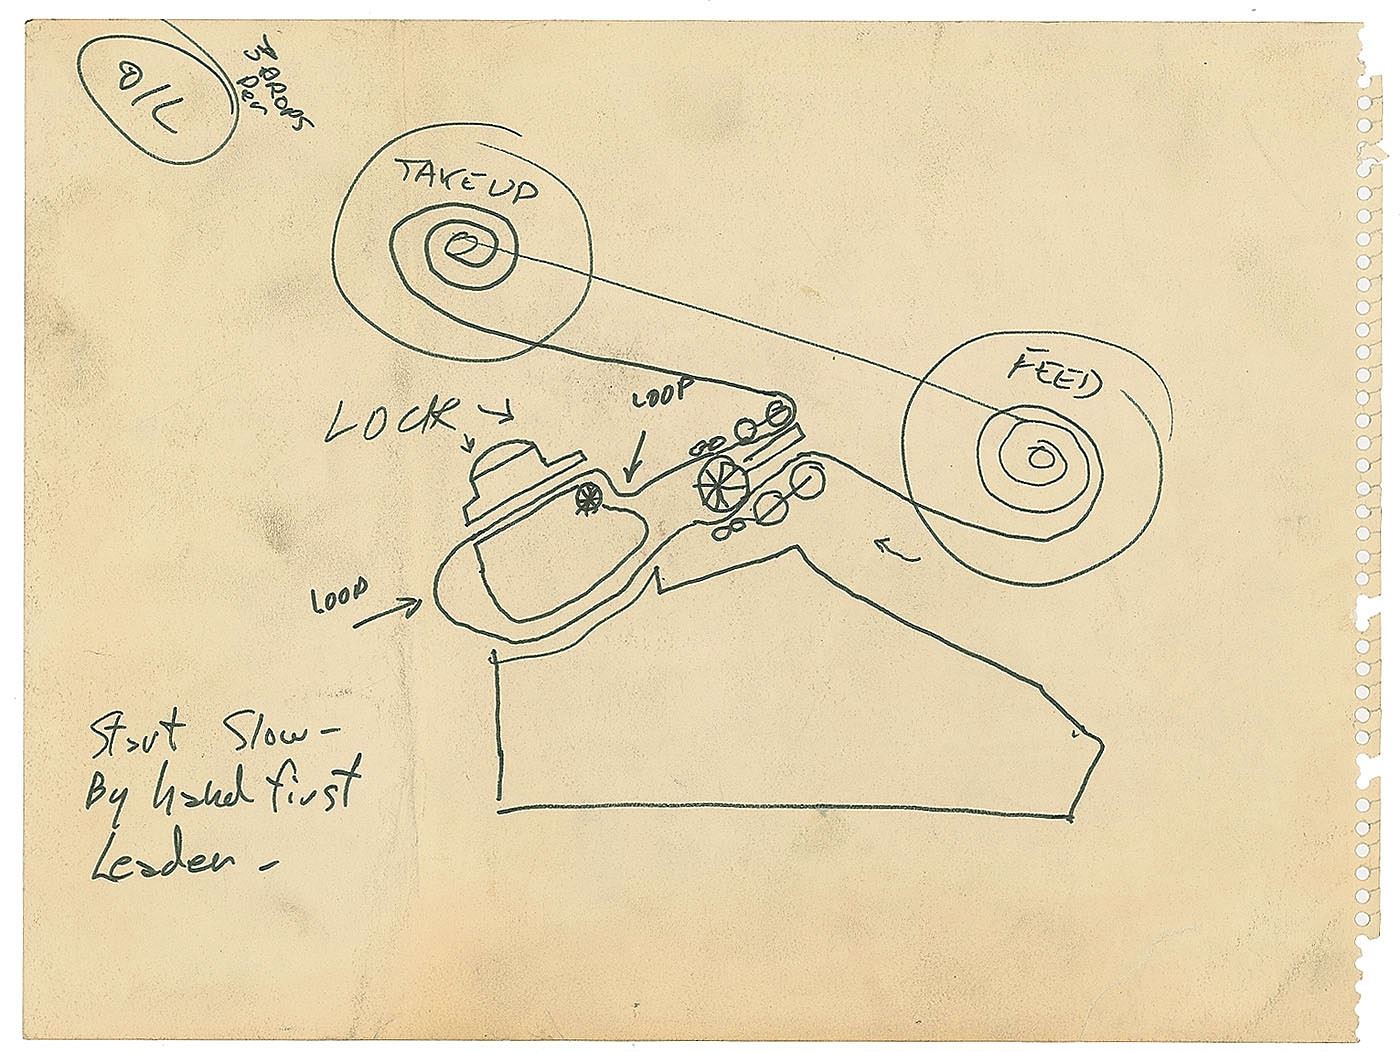 OIL
3 DROPS
Per
TAKE UP
FEED
LOOP
LOCK
LOOP
Start Slow -
By hand first
Leader -